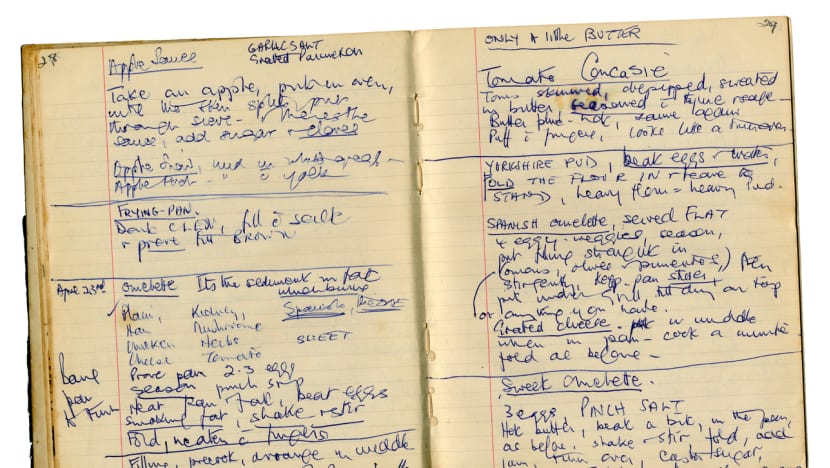 28
Apple Sauce
GARLIC SALT
Grated Parmeson
Take an apple, put in oven,
until the skin splits, pass
through sieve -
sauce, add sugar + cloves
Apple Snow, and in whites of egg -
Apple
FRYING-PAN.
Don't CLEAN, fill c̄ salt
+ prove till BROWN
April 23rd omelette Its the sediment in fat
which burns
Plain, Kidney, Spanish,
Ham Mushrooms
Chicken Herbs SWEET
Cheese Tomato
Prove pan 2-3 eggs
season pinch
Heat pan, fat, beat eggs
smoking fat, shake + stir
Fold, neaten c̄
Filling, precook, arrange in middle
Bang
pan
to Finish
29
ONLY A little BUTTER
Tomato Concasie
Toms skinned, depipped, sweated
in butter seasoned c̄
Butter
Puff looks like a turnover.
YORKSHIRE PUD, beat eggs + water,
FOLD THE FLOUR IN + leave to
STAND, heavy flour = heavy Pud.
SPANISH omelette, served FLAT
4 eggs, veggies, season,
put filling straight in
(Tomatos, olives + pimentos,) pan
stir gently, keep pan still
put under grill, till dry on top
or anything you have.
Grated cheese. Put in middle
when in pan - cook a minute
fold as before -
Sweet Omelette.
3 eggs, PINCH SALT
Hot butter, beat a bit, in the pan,
as before, shake + stir, fold, add
jam, turn over, castor sugar,